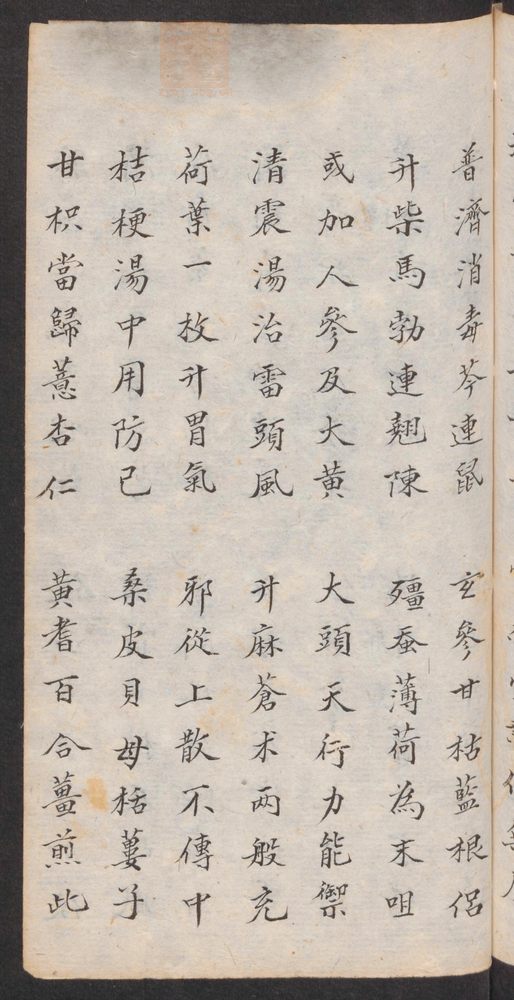 普濟消毒芩連鼠　玄參甘桔藍根侣
升柴馬勃連翹陳　殭蚕薄荷為末咀
或加人參及大黄　大頭天行力能禦
清震湯治雷頭風　升麻蒼术两般充
荷葉一枚升胃氣　邪從上散不傳中
桔梗湯中用防己　桑皮貝母栝蔞子
甘枳當歸薏杏仁　黄耆百合薑煎此